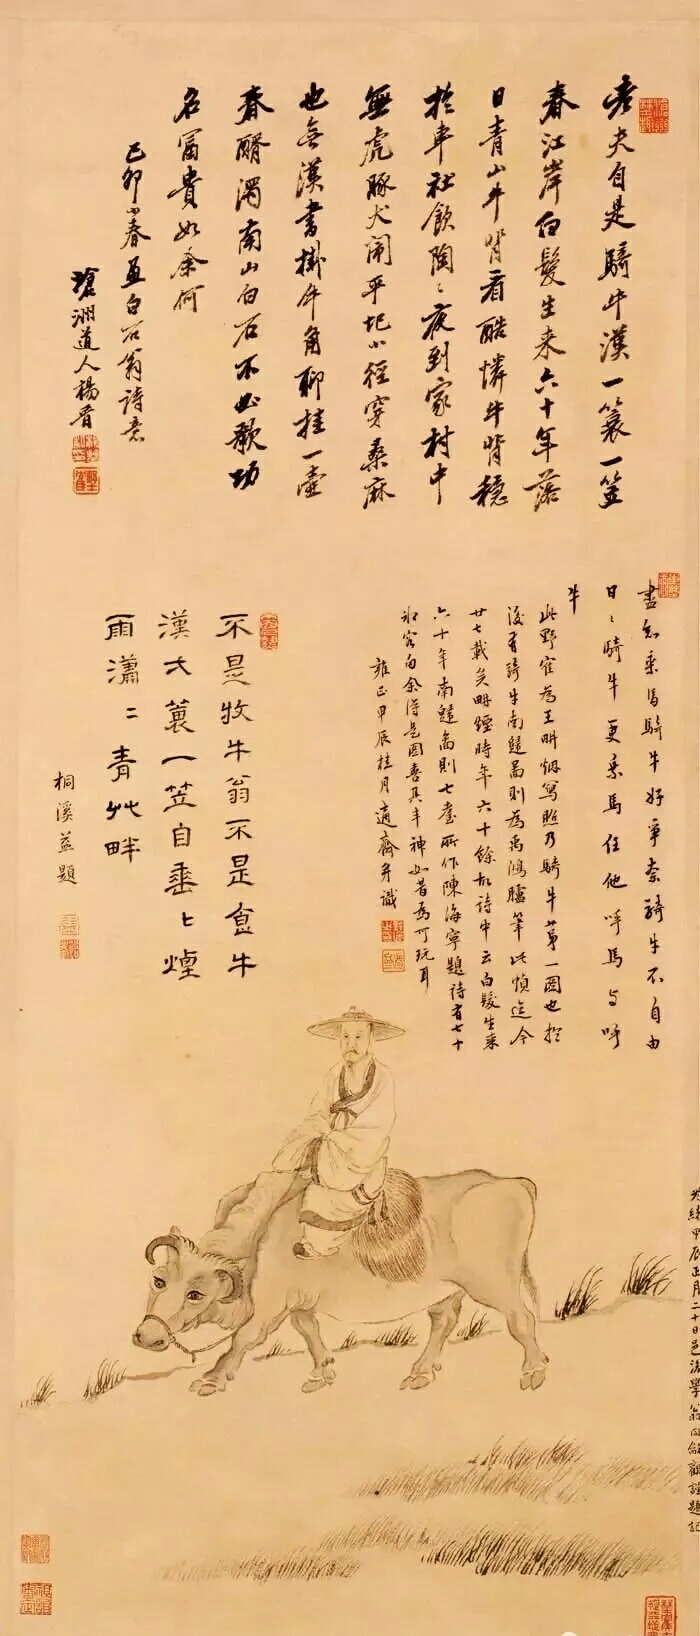 老夫自是騎牛漢一蓑一笠
春江岸白髮生来六十年落
日青山牛背看酷憐牛背穏
於車社飲陶〻夜到家村中
無虎豚犬閙平圯小徑穿桑麻
也無漢書掛牛角聊挂一壺
春醑濁南山白石不必歌功
名冨貴如余何
己卯小春画白石翁詩意
瑲洲道人楊晋
盡知乘馬騎牛好爭奈騎牛不自由
日〻騎牛更乘馬任他呼馬与呼
牛
此野雀為王畊烟寫照乃騎牛苐一圖也於
後有騎牛南還啚則為禹鴻臚筆此幀迄今
廿七載矣畊煙時年六十餘故詩中云白髮生来
六十年南還啚則七耋所作陳海寧題詩有七十
沁容白余得是圖喜其丰神如昔為可玩耳
雍正甲辰桂月適齋并識
不是牧牛翁不是食牛
漢大蓑一笠自垂〻煙
雨瀟〻青艸畔
桐溪益題
光緒甲辰正月二十日邑後學翁同龢觀謹題記